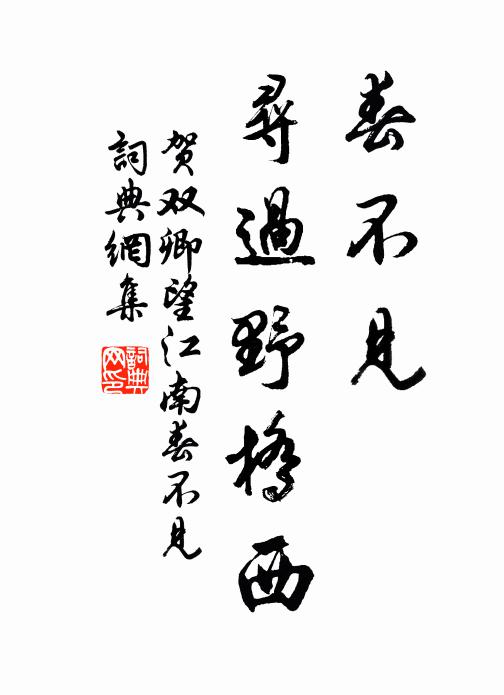 春不见
尋過野橋西
贺双卿望江南春不见
詞典網集
詞典网印